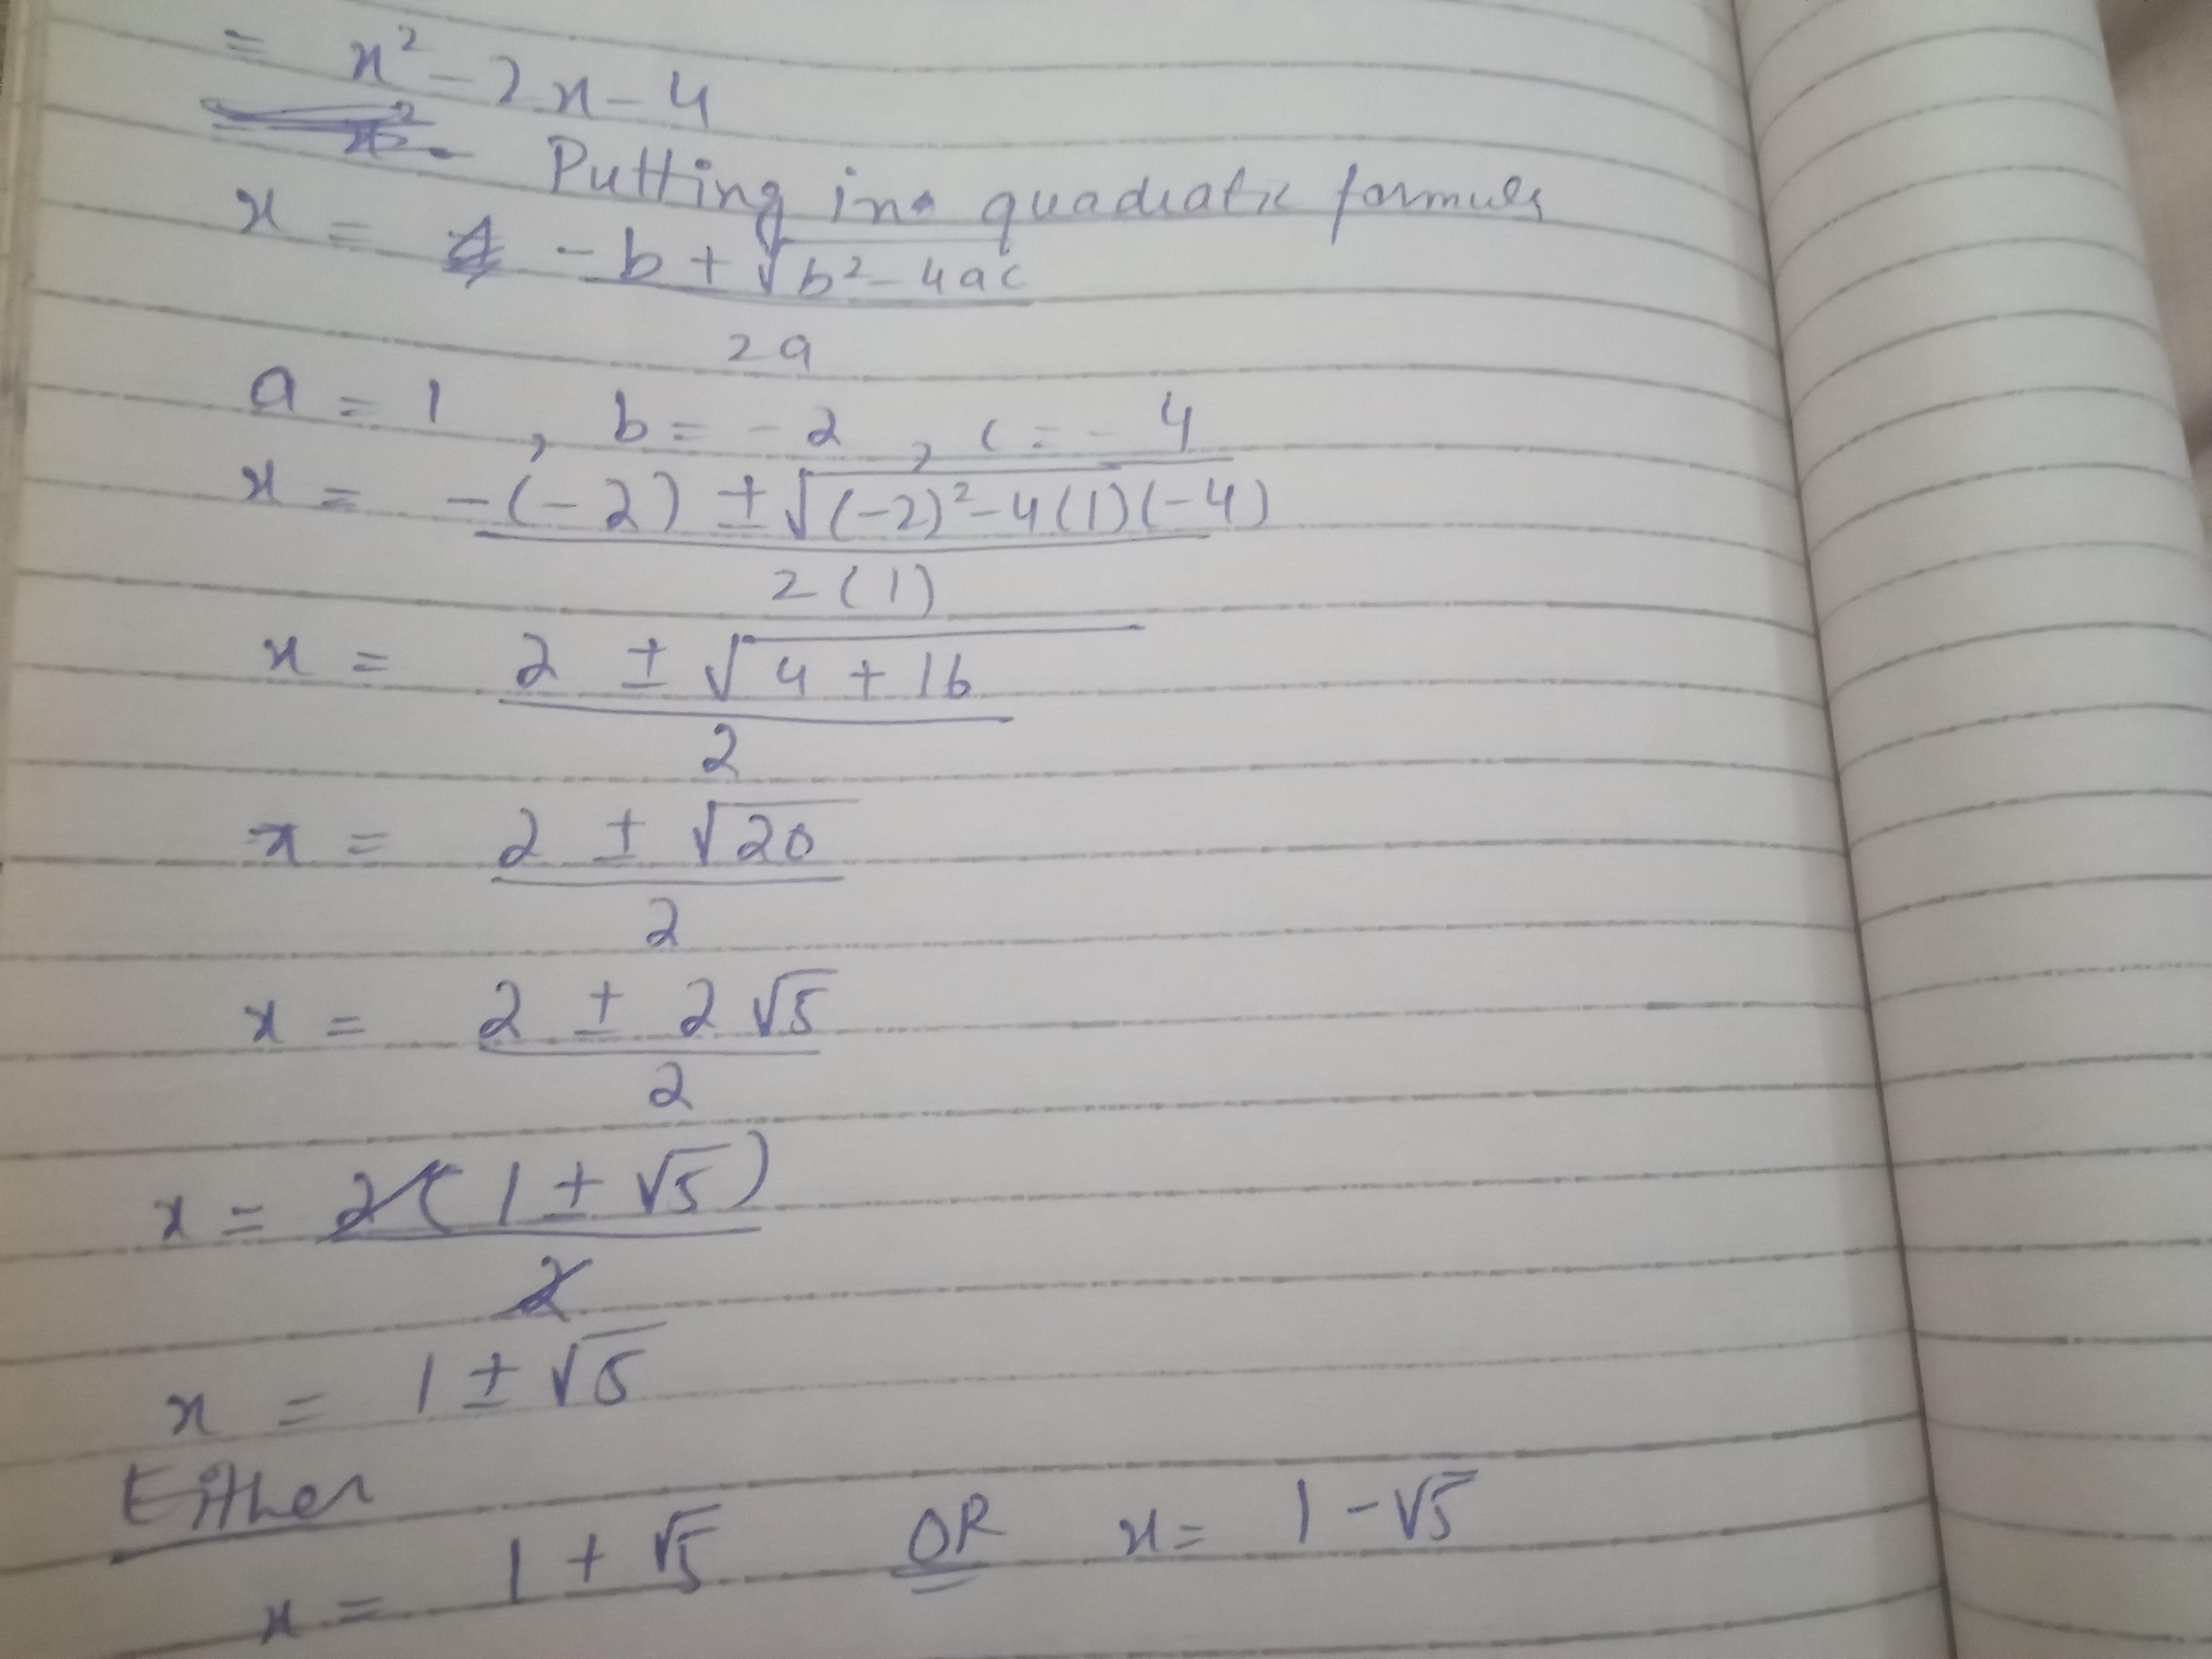 = x² - 2x - 4
Putting in quadratic formula
x = -b + √(b² - 4ac)
2a
a = 1 , b = -2 , c = -4
x = -(-2) ± √((-2)² - 4(1)(-4))
2(1)
x = 2 ± √(4 + 16)
2
x = 2 ± √20
2
x = 2 ± 2√5
2
x = 2(1 ± √5)
2
x = 1 ± √5
Either
x = 1 + √5 OR x = 1 - √5